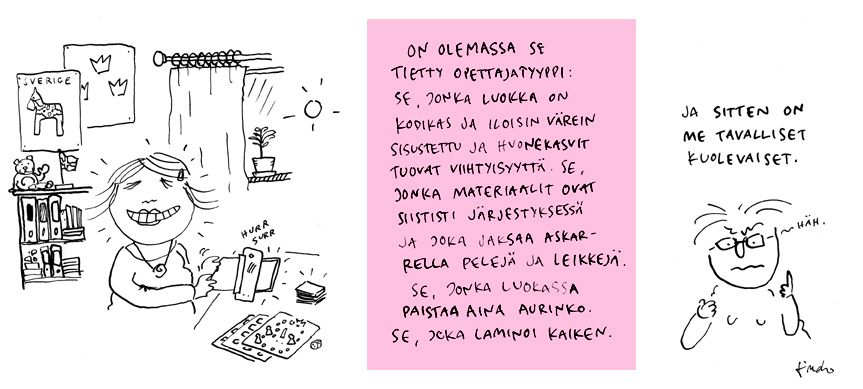 SVERIGE
HURR
SURR
ON OLEMASSA SE
TIETTY OPETTAJATYYPPI:
SE, JONKA LUOKKA ON
KODIKAS JA ILOISIN VÄREIN
SISUSTETTU JA HUONEKASVIT
TUOVAT VIIHTYISYYTTÄ. SE,
JONKA MATERIAALIT OVAT
SIISTISTI JÄRJESTYKSESSÄ
JA JOKA JAKSAA ASKAR-
RELLA PELEJÄ JA LEIKKEJÄ.
SE, JONKA LUOKASSA
PAISTAA AINA AURINKO.
SE, JOKA LAMINOI KAIKEN.
JA SITTEN ON
ME TAVALLISET
KUOLEVAISET.
HÄH.